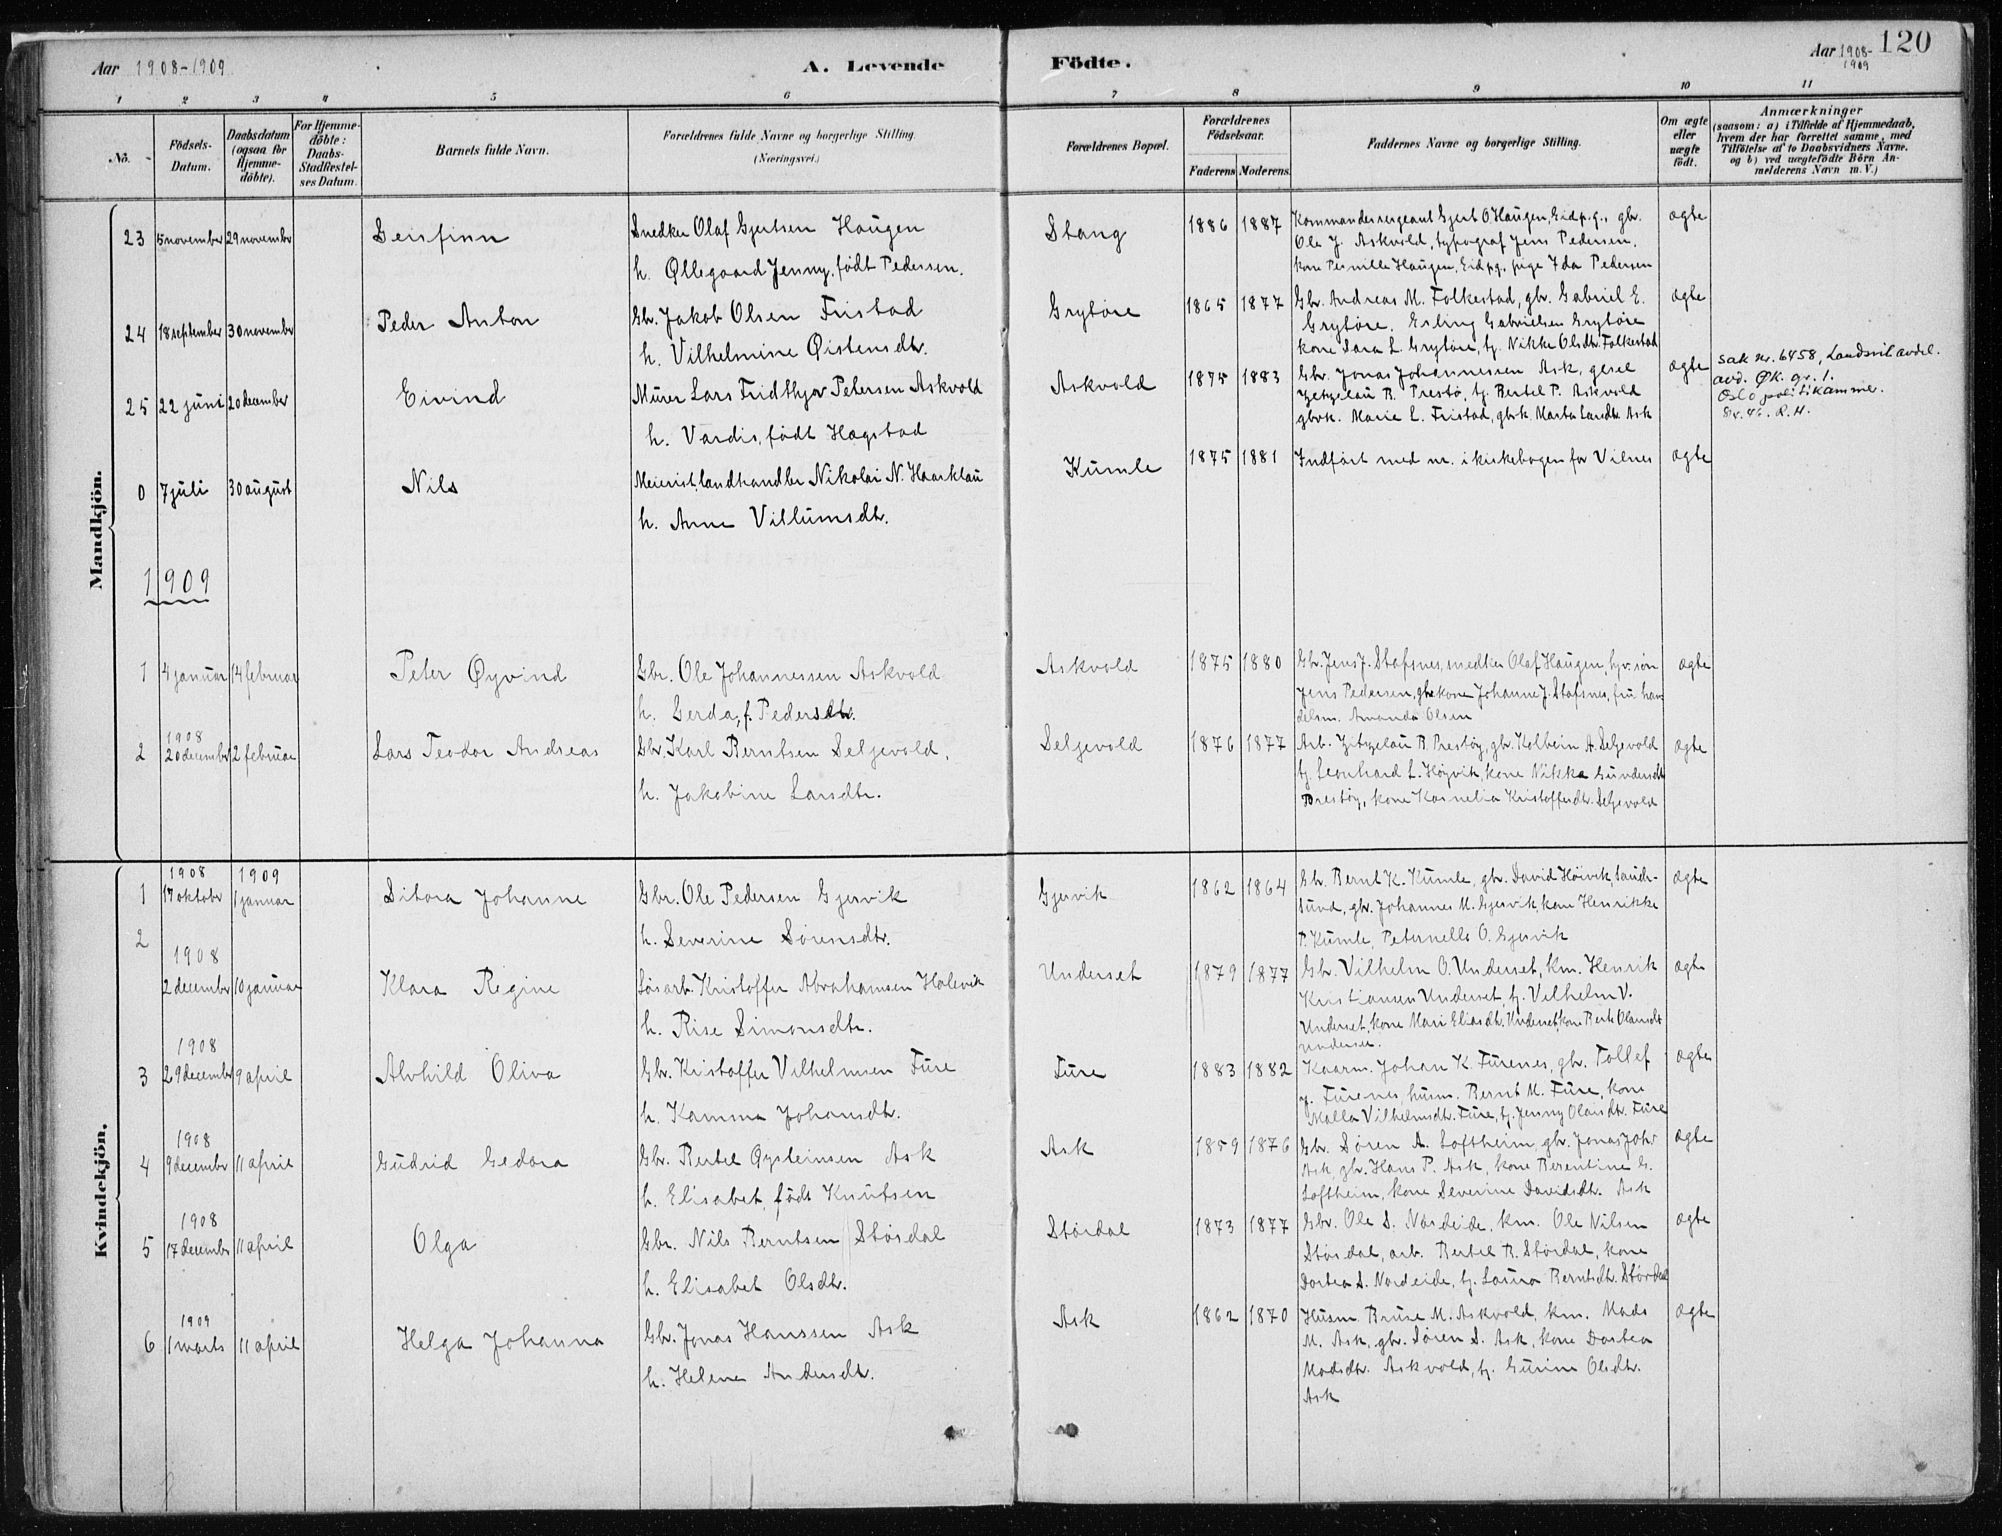 Aar 1908-1909
A. Levende Födte.
Aar 1908-1909
120
1 2 3 4 5 6 7 8 9 10 11
No.
Födsels-Datum.
Daabsdatum (ogsaa for Hjemme-döbte).
For Hjemme-döbte: Daabs-Stadfæstel-ses Datum.
Barnets fulde Navn.
Forældrenes fulde Navne og borgerlige Stilling.
(Næringsvei.)
Forældrenes Bopæl.
Forældrenes Födselsaar.
Faderens Moderens
Faddernes Navne og borgerlige Stilling.
Om ægte eller uægte födt.
Anmærkninger
(saasom: a) i Tilfælde af Hjemmedaab,
hvem der har forrettet samme, med
Tilföielse af to Daabsvidners Navne,
og b) ved uægtefödte Börn An-
melderens Navn m. V.)
Mandkjön.
23 5 november 29 november Geirfinn
Snedker Olaf Gjertsen Haugen
h. Øllegaard Jenny, født Pedersen.
Stang 1886 1887
Kommandersergeant Gjert O Haugen, Eid p.g., gbr.
Ole J. Askvold, typograf Jens Pedersen,
kone Pernille Haugen, Eid pg. pige Ida Pedersen
ægte
24 18 september 30 november Peder Anton
Gbr. Jakob Olsen Fristad
h. Vilhelmine Øistensdtr.
Grytøre 1865 1877
Gbr. Andreas M. Folkestad, gbr. Gabriel E.
Grytøre, Erling Gabrielsen Grytøre
kone Sara L. Grytøre, tj. Nikke Olsdtr. Folkestad
ægte
25 22 juni 20 december Eivind
Murer Lars Fridthjor Petersen Askvold
h. Vardis, født Hagstad
Askvold 1875 1883
Gbr. Jonas Johannessen Ask, gesel
Zetzelau B. Prestø, tj. Bertel P. Askvold
gbrk. Marie L. Fristad, gbrk Marta Larsdtr Ask
ægte
sak nr. 6458, Landsvikavdel.
avd. ØK. gr. 1.
Oslo politikammer.
8/2.46. R.H.
0 7 juli 30 august Nils
Meierist, landhandler Nikolai N. Haarklau
h. Anne Villumsdtr.
Kumle 1875 1881
Indført med nr. i kirkebogen for Vilnes
ægte
1909
1 4 januar 14 februar Peter Øyvind
Gbr. Ole Johannessen Askvold
h. Gerda, f. Pedersdtr.
Askvold 1875 1880
Gbr. Jens J. Stafsnes, snedker Olaf Haugen, tyv. søn
Jens Pedersen, gbrkone Johanne J. Stafsnes, fru han-
delsm. Amanda Olsen
ægte
1908
2 20 decembr 2 februar Lars Teodor Andreas
Gbr. Karl Berntsen Seljevold,
h. Jakobine Larsdtr.
Seljevold 1876 1877
Arb. Zetzelau B. Prestøy, gbr. Kolbein A. Seljevold
tj. Leonhard L. Høyvik, kone Nikka Gundersdtr
Prestøy, kone Kornelia Kristoffersdtr. Seljevold
ægte
Kvindekjön.
1908 1909
1 17 oktobr 1 januar Sitora Johanne
Gbr. Ole Pedersen Gjersvik
h. Severine Sørensdtr.
Gjervik 1862 1864
Gbr. Bernt K. Kumle, gbr. David Høivik, Saude-
sund, gbr. Johannes M. Gjersvik, kone Henrikke
P. Kumle, Peternelle O. Gjersvik
ægte
1908
2 2 december 10 januar Klara Regine
Løsarb. Kristoffer Abrahamsen Holevik
h. Rise Simonsdtr.
Underset 1879 1877
Gbr. Vilhelm O. Underset, km. Henrik
Kristiansen Underset, tj. Vilhelm V.
Underset, kone Mari Eliasdtr. Underset, kone Berte Olausdtr
Underset.
ægte
1908
3 29 decembr 9 april Alvhild Oliva
Gbr. Kristoffer Vilhelmsen Fure
h. Kamma Johansdtr.
Fure 1883 1882
Kaarm. Johan K. Furenes, gbr. Tollef
J. Furenes, husm. Bernt M. Fure, kone
Malla Vilhelmsdtr. Fure, tj. Jenny Olausdtr. Fure
ægte
1908
4 9 decembr 11 april Gudrid Gedora
Gbr. Bertel Øysteinsen Ask
h. Elisabet, født Knutsen
Ask 1859 1876
Gbr. Søren A. Loftheim, gbr. Jonas Johs
Ask, gbr. Hans P. Ask, kone Berentine G.
Loftheim, kone Severine Davidsdtr. Ask
ægte
1908
5 17 decembr 11 april Olga
Gbr. Nils Berntsen Størdal
h. Elisabet Olsdtr.
Størdal 1873 1877
Gbr. Ole S. Nordeide, km. Ole Nilsen
Størdal, arb. Bertel B. Størdal, kone
Dortea S. Nordeide, tj. Laura Berntsdtr. Størdal
ægte
1909
6 1 marts 11 april Helga Johanna
Gbr. Jonas Hanssen Ask
h. Helene Andersdtr.
Ask 1862 1870
Husm Bruse M. Askvold, km. Mads
M. Ask, gbr. Søren S. Ask, kone Dortea
Madsdtr. Askvold, tj. Gurine Olsdtr.
Ask
ægte